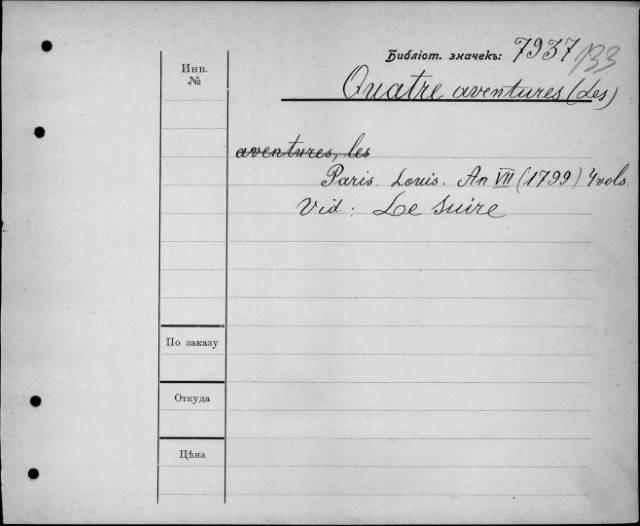 Библіот. значекъ: 7937 133
Инв.
№
Quatre aventures (Les)
aventures, les
Paris. Louis. An VII (1799) 4 vols.
Vid: Le Suire
По заказу
Откуда
Цѣна